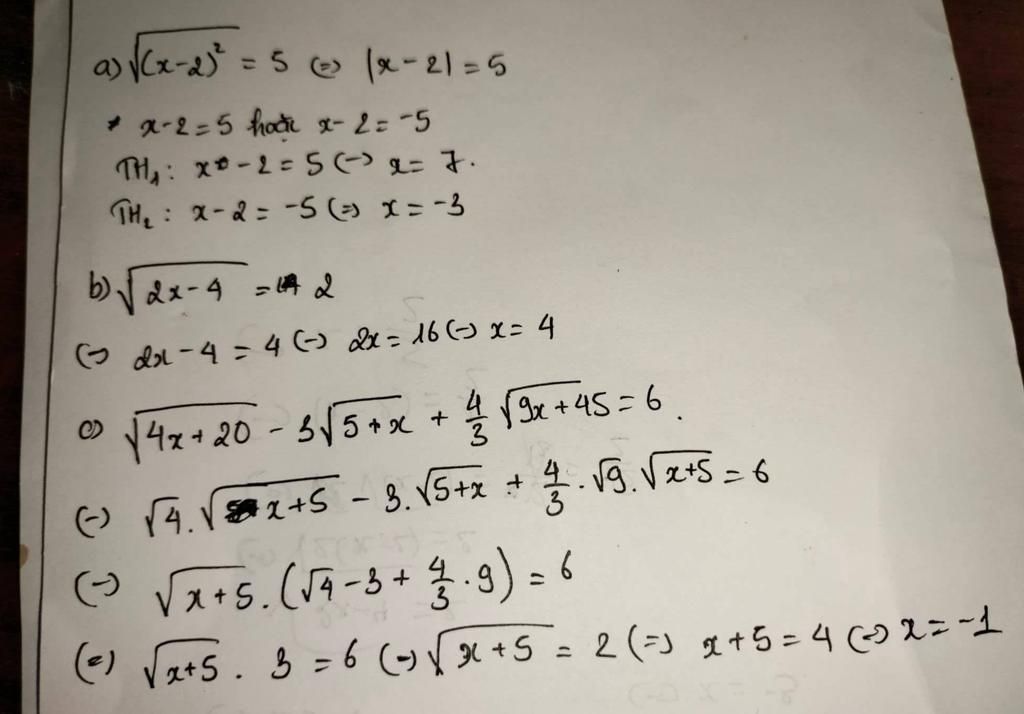 a) √(x-2)² = 5 (=) |x-2| = 5
* x-2=5 hoặc x-2=-5
TH₁: x-2=5 (-) x=7.
TH₂: x-2=-5 (=) x=-3
b) √2x-4 = 2
(-) 2x-4=4 (-) 2x=16 (-) x=4
c) √4x+20 - 3√5+x + 4/3 √9x+45 = 6.
(-) √4.√x+5 - 3.√5+x + 4/3.√9.√x+5 = 6
(-) √x+5.(√4-3+4/3.9) = 6
(=) √x+5 . 3 = 6 (-) √x+5 = 2 (=) x+5=4 (=) x=-1